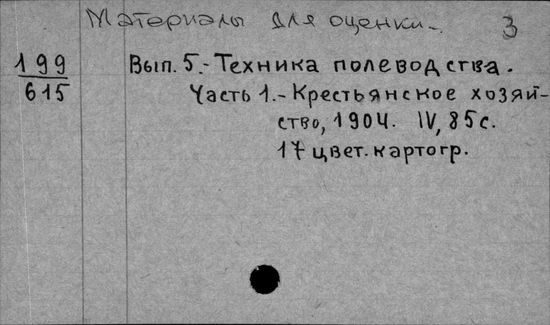 Материалы для оценки. 3
199
615
Вып. 5.-Техника полеводства.
Часть 1.-Крестьянское хозяй-
ство, 1904. IV, 85 с.
17 цвет. картогр.